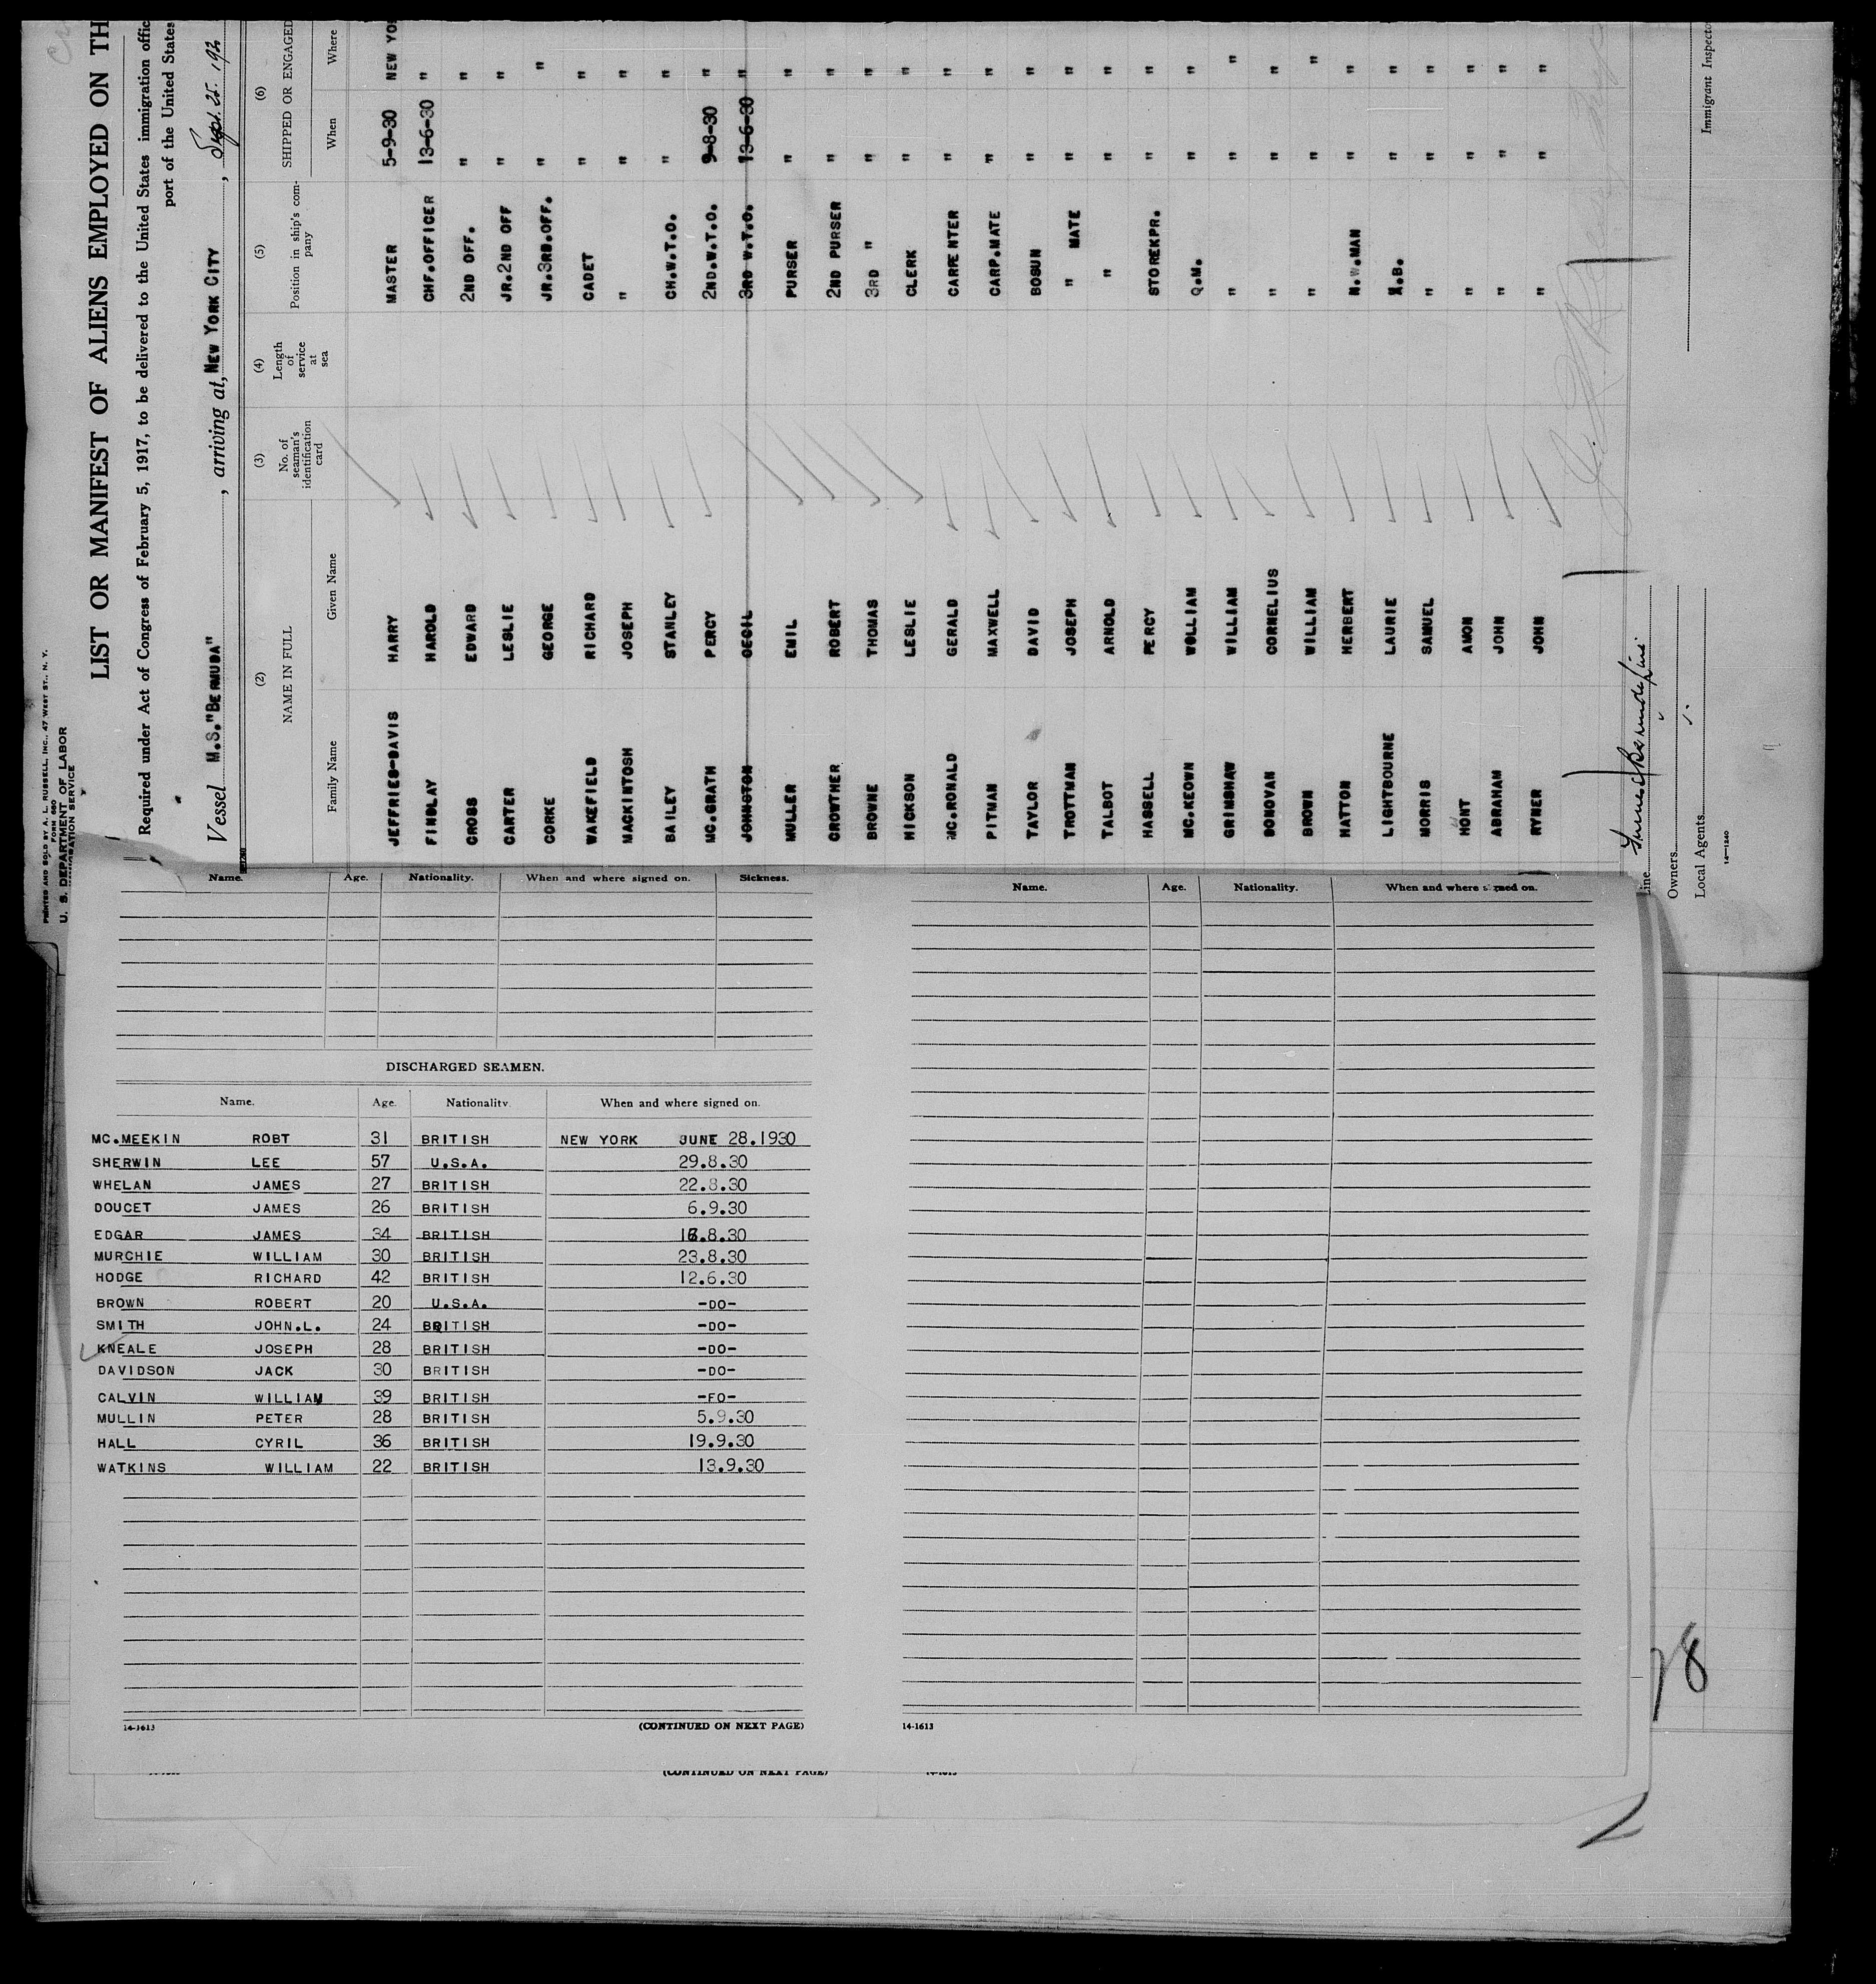 PRINTED AND SOLD BY A. L. RUSSELL, INC., 47 WEST ST., N. Y.
FORM 680
U. S. DEPARTMENT OF LABOR
IMMIGRATION SERVICE
LIST OR MANIFEST OF ALIENS EMPLOYED ON TH
Required under Act of Congress of February 5, 1917, to be delivered to the United States immigration offic
port of the United States
Vessel M.S."BERMUDA", arriving at, NEW YORK CITY, Sept. 25. 192
(2) (3) (4) (5) (6)
NAME IN FULL No. of seaman's identification card Length of service at sea Position in ship's company SHIPPED OR ENGAGED
Family Name Given Name When Where
JEFFRIES-DAVIS HARRY MASTER 5-9-30 NEW YO
FINDLAY HAROLD CHF.OFFICER 13-6-30 "
CROSS EDWARD 2ND OFF. " "
CARTER LESLIE JR.2ND OFF " "
CORKE GEORGE JR.3RD.OFF. " "
WAKEFIELD RICHARD CADET " "
MACKINTOSH JOSEPH " " "
BAILEY STANLEY CH.W.T.O. " "
MC.GRATH PERCY 2ND.W.T.O. 9-8-30 "
JOHNSTON CECIL 3RD W.T.O. 13-6-30 "
MULLER EMIL PURSER " "
CROWTHER ROBERT 2ND PURSER " "
BROWNE THOMAS 3RD " " "
HICKSON LESLIE CLERK " "
MC.RONALD GERALD CARPENTER " "
PITMAN MAXWELL CARP.MATE " "
TAYLOR DAVID BOSUN " "
TROTTMAN JOSEPH " MATE " "
TALBOT ARNOLD " " "
HASSELL PERCY STOREKPR. " "
MC.KEOWN WOLLIAM Q.M. " "
GRIMSHAW WILLIAM " " "
DONOVAN CORNELIUS " " "
BROWN WILLIAM " " "
HATTON HERBERT N.W.MAN " "
LIGHTBOURNE LAURIE A.B. " "
MORRIS SAMUEL " " "
HONT AMON " " "
ABRAHAM JOHN " " "
RYMER JOHN " " "
Line Furness Bermuda Line
Owners
Local Agents
14—1240
Immigrant Inspecto
Name. Age. Nationality. When and where signed on. Sickness.
DISCHARGED SEAMEN.
Name. Age. Nationality. When and where signed on.
MC.MEEKIN ROBT 31 BRITISH NEW YORK JUNE 28.1930
SHERWIN LEE 57 U.S.A. 29.8.30
WHELAN JAMES 27 BRITISH 22.8.30
DOUCET JAMES 26 BRITISH 6.9.30
EDGAR JAMES 34 BRITISH .8.30
MURCHIE WILLIAM 30 BRITISH 23.8.30
HODGE RICHARD 42 BRITISH 12.6.30
BROWN ROBERT 20 U.S.A. -DO-
SMITH JOHN.L. 24 BRITISH -DO-
KNEALE JOSEPH 28 BRITISH -DO-
DAVIDSON JACK 30 BRITISH -DO-
CALVIN WILLIAM 39 BRITISH -FO-
MULLIN PETER 28 BRITISH 5.9.30
HALL CYRIL 36 BRITISH 19.9.30
WATKINS WILLIAM 22 BRITISH 13.9.30
14-1613 (CONTINUED ON NEXT PAGE)
(CONTINUED ON NEXT PAGE)
Name. Age. Nationality. When and where signed on.
14-1613
14-1613
8